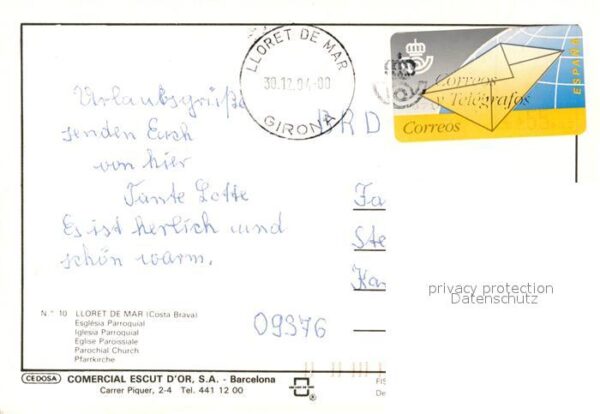 LLORET DE MAR
30.12.94-00
GIRONA
Correos
y Telégrafos
Correos
ESPAÑA
Urlaubsgrüße
senden Euch
von hier
Tante Lotte
Es ist herlich und
schön warm.
BRD
Fa
Ste
Ka
09376
privacy protection
Datenschutz
N.° 10 LLORET DE MAR (Costa Brava)
Església Parroquial
Iglesia Parroquial
Eglise Paroissiale
Parochial Church
Pfarrkirche
CEDOSA COMERCIAL ESCUT D'OR, S.A. - Barcelona
Carrer Piquer, 2-4 Tel. 441 12 00
FIS
De